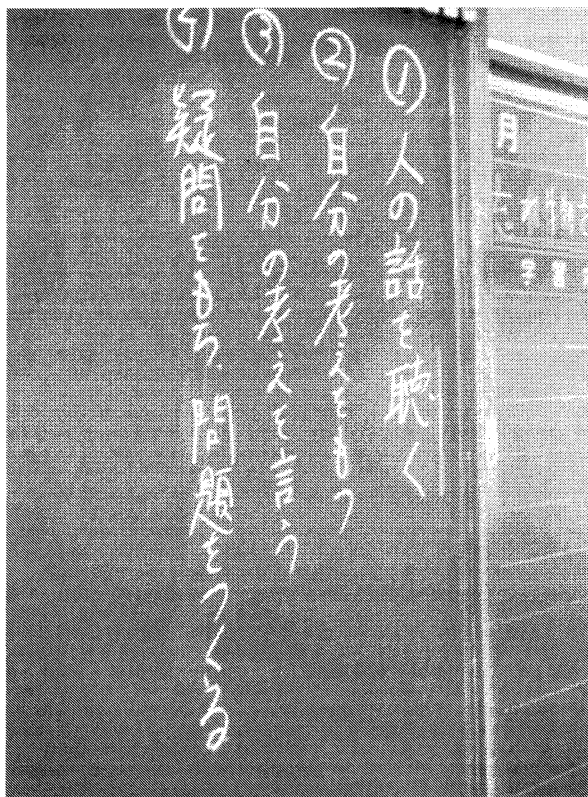 ① 人の話を聴く
② 自分の考えをもつ
③ 自分の考えを言う
疑問をもち、問題をつくる
月